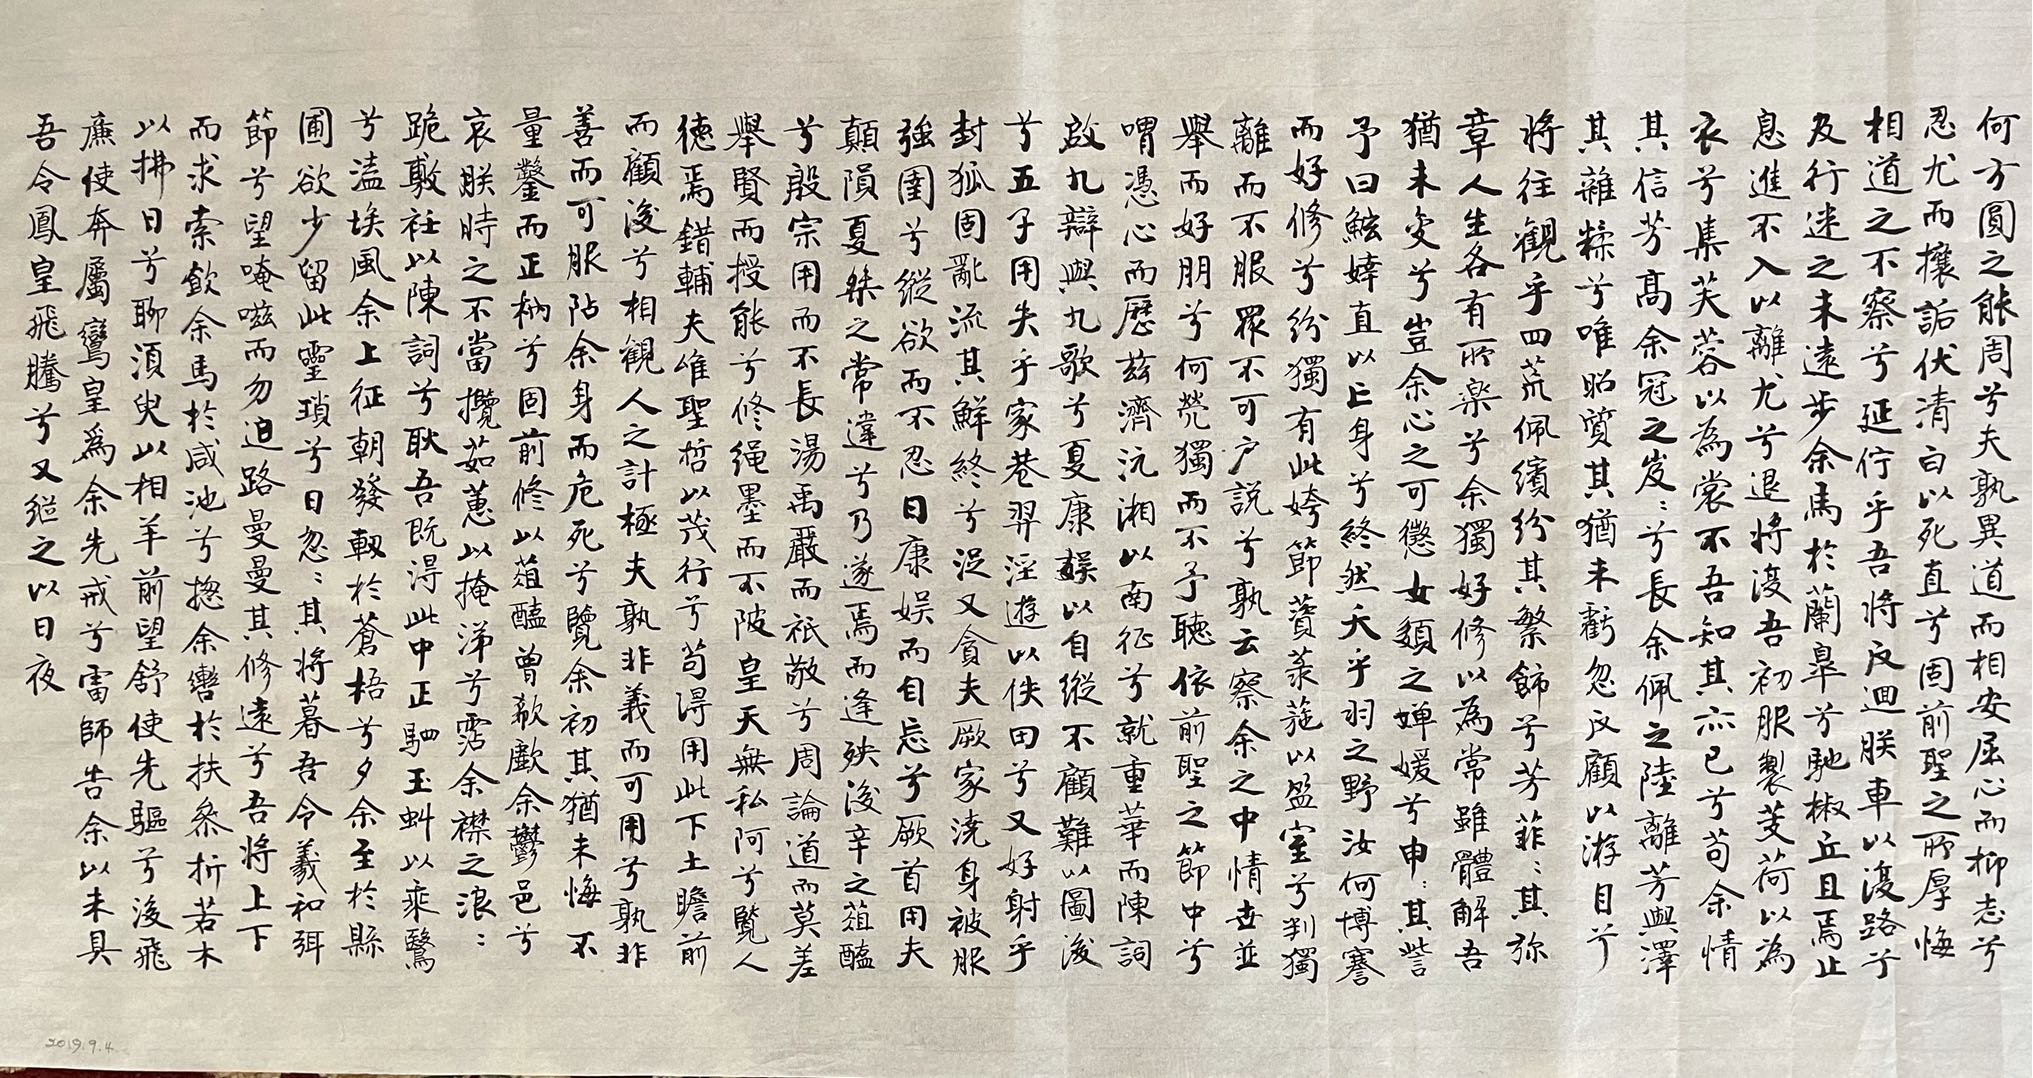 何方圓之能周兮夫孰異道而相安屈心而抑志兮
忍尤而攘詬伏清白以死直兮固前聖之所厚悔
相道之不察兮延佇乎吾將反迴朕車以復路兮
及行迷之未遠步余馬於蘭皋兮馳椒丘且焉止
息進不入以離尤兮退將復吾初服製芰荷以為
衣兮集芙蓉以為裳不吾知其亦已兮苟余情
其信芳高余冠之岌:兮長余佩之陸離芳與澤
其雜糅兮唯昭質其猶未虧忽反顧以游目兮
將往觀乎四荒佩繽紛其繁飾兮芳菲:其弥
章人生各有所樂兮余獨好修以為常雖體解吾
猶未变兮豈余心之可懲女嬃之嬋媛兮申:其詈
予曰鮌婞直以亡身兮終然夭乎羽之野汝何博謇
而好修兮紛獨有此姱節薋菉葹以盈室兮判獨
離而不服眾不可户説兮孰云察余之中情世並
舉而好朋兮何煢獨而不予聽依前聖之節中兮
喟憑心而歷茲濟沅湘以南征兮就重華而陳詞
啟九辯與九歌兮夏康娱以自縱不顧難以圖後
兮五子用失乎家巷羿淫遊以佚田兮又好射乎
封狐固亂流其鮮終兮浞又貪夫厥家澆身被服
強圉兮縱欲而不忍日康娱而自忘兮厥首用夫
顛隕夏桀之常違兮乃遂焉而逢殃後辛之菹醢
兮殷宗用而不長湯禹嚴而祇敬兮周論道而莫差
舉賢而授能兮修繩墨而不陂皇天無私阿兮覽人
德焉錯輔夫唯聖哲以茂行兮苟得用此下土瞻前
而顧後兮相觀人之計極夫孰非義而可用兮孰非
善而可服阽余身而危死兮覽余初其猶未悔不
量鑿而正枘兮固前修以菹醢曾歔歔余鬱邑兮
哀朕時之不當攬茹蕙以掩涕兮霑余襟之浪:
跪敷衽以陳詞兮耿吾既得此中正駟玉虯以乘鷖
兮溘埃風余上征朝發軔於蒼梧兮夕余至於縣
圃欲少留此靈瑣兮日忽:其將暮吾令羲和弭
節兮望崦嵫而勿迫路曼曼其修遠兮吾將上下
而求索飲余馬於咸池兮揔余轡於扶桑折若木
以拂日兮聊須臾以相羊前望舒使先驅兮後飛
廉使奔屬鸞皇為余先戒兮雷師告余以未具
吾令鳳皇飛騰兮又繼之以日夜
2019.9.4